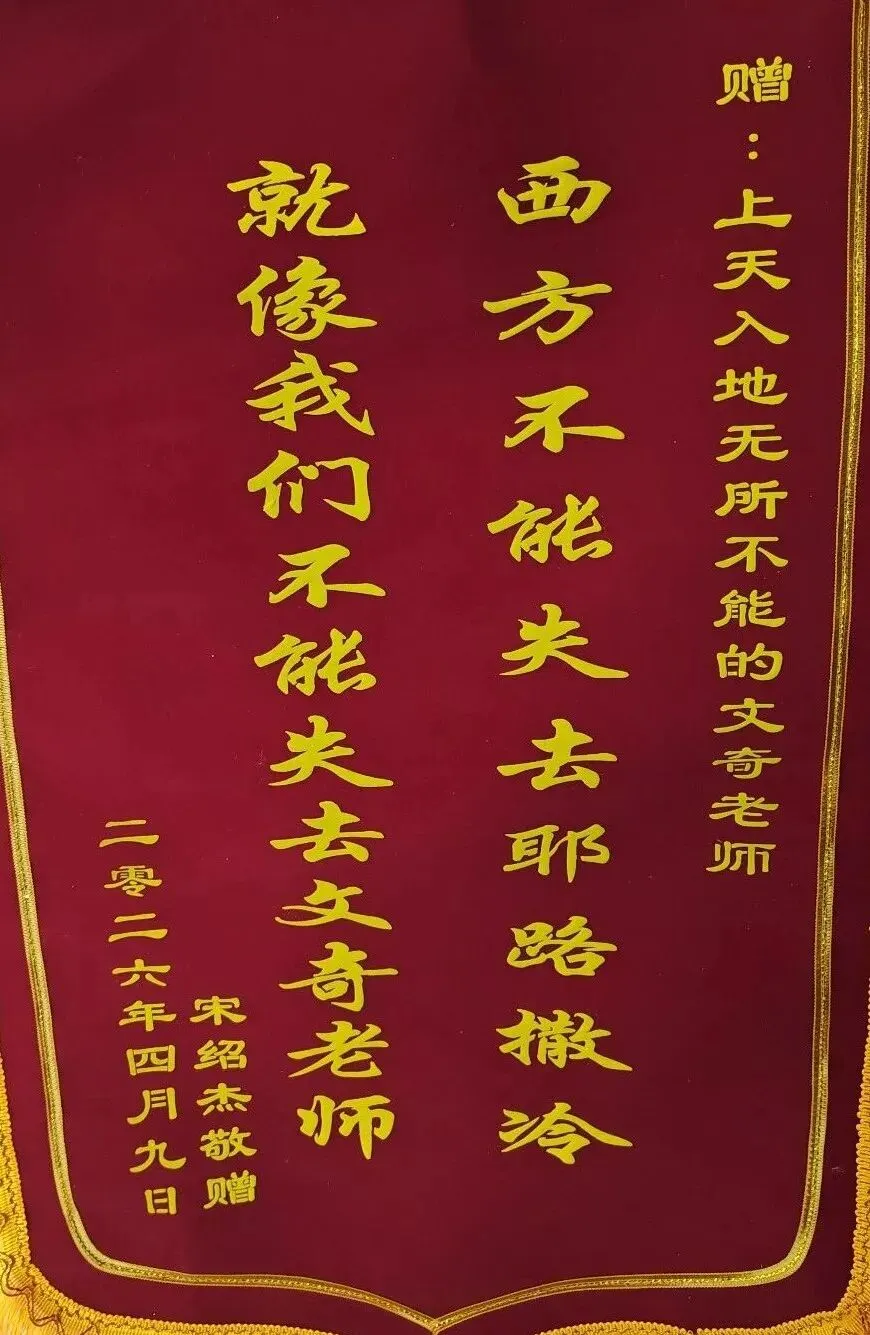 赠：上天入地无所不能的文奇老师
西方不能失去耶路撒冷
就像我们不能失去文奇老师
宋绍杰敬赠
二零二六年四月九日